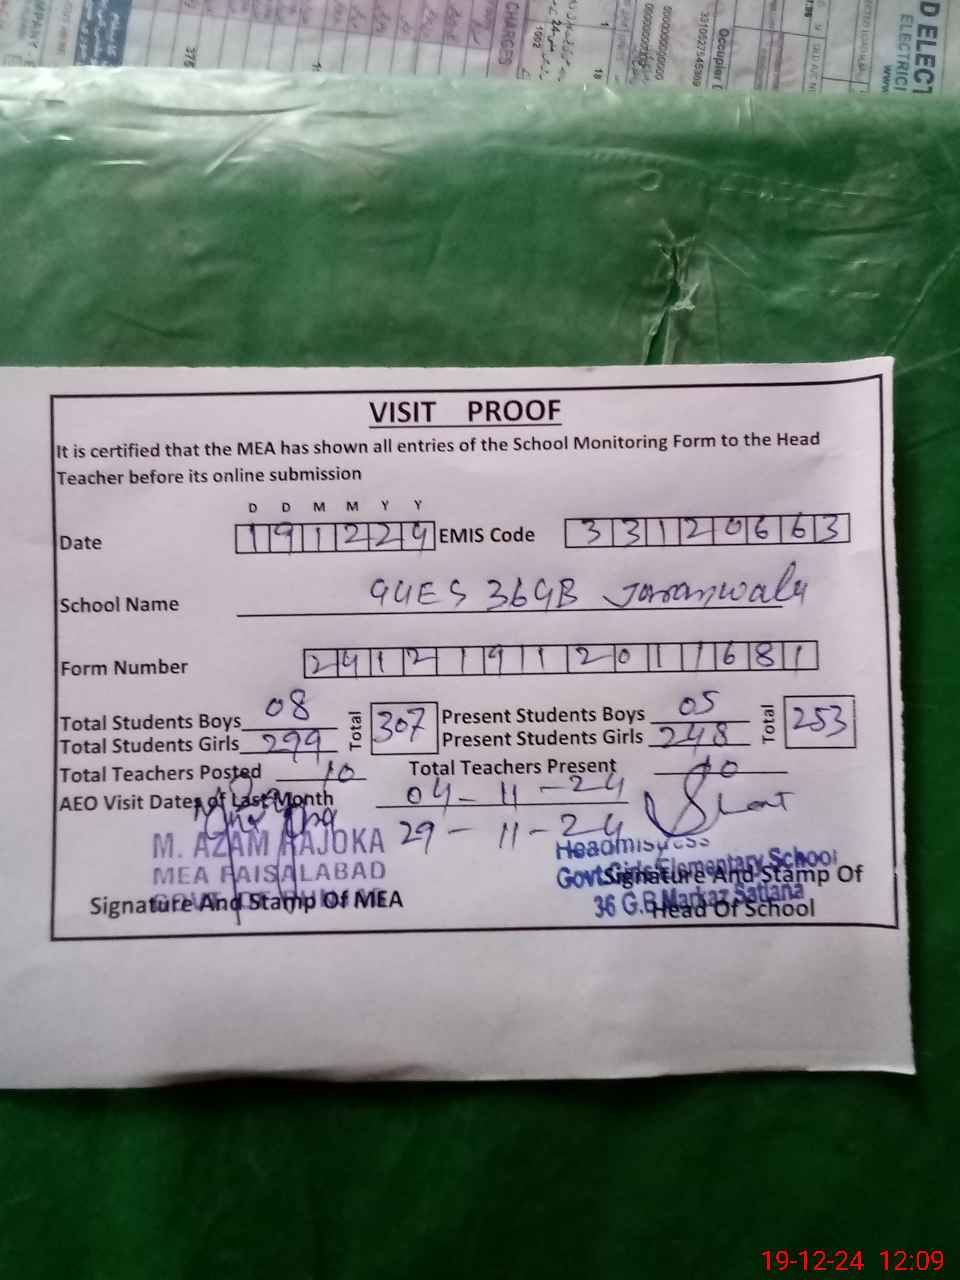 D ELECT
ELECTRICI
www
Occupier
3310527645369
0000000000000
CHARGES
1002
18
375
VISIT PROOF
It is certified that the MEA has shown all entries of the School Monitoring Form to the Head
Teacher before its online submission
D D M M Y Y
Date 191224 EMIS Code 33120663
School Name GGES 36GB Jaranwala
Form Number 24121912011681
Total Students Boys 08 Total 307 Present Students Boys 05 Total 253
Total Students Girls 299 Present Students Girls 248
Total Teachers Posted 10 Total Teachers Present 10
AEO Visit Dates of Last Month 04-11-24
29-11-24
M. AZAM RAJOKA
MEA FAISALABAD
Signature And Stamp Of MEA
Headmistress
Govt Girls Elementary School
36 G.B Markaz Satiana
Signature And Stamp Of
Head Of School
19-12-24 12:09